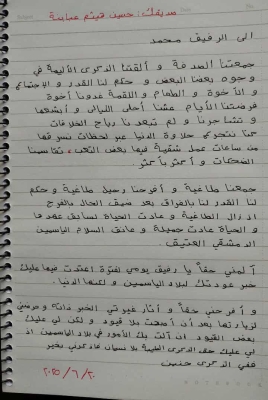 صديقك: حسين هيثم عبابنة
الى الرفيق محمد
جمعتنا الصدفة و ألفتنا الذكرى الأليمة في
وجوه بعضنا البعض و حكم لنا القدر والإجتماع
و الأخوة و الطعام و اللقمة غدونا أخوة
فرضتنا الأيام عشنا أحلى الليالي و أبشعها
و تشاجرنا و لم تبعدنا رياح الخلافات
كنا نتجرع حلاوة الدنيا عبر لحظات نسرقها
من ساعات عمل شقية فيها بعض التعب، تقاسمنا
الضحكات و أكثر بأكثر.
جمعنا طاغية و أفرحنا رحيل طاغية و حكم
لنا القدر لنا بالفراق بعد ضيق الحال بالفرج
اذ زال الطاغية و عادت الحياة لسابق عهدها
و الحياة عادت جميلة و عانق السلام الياسمين
الدمشقي العتيق.
آلمني حقاً يا رفيق يومي لفترة اعتدت فيها عليك
خبر عودتك لبلاد الياسمين و لكنها الدنيا.
و أفرحني حقاً و أثار غيرتي الخبر ذاته و حرمني
لزيارتها بعد أن أصبحت بلا قيود و لكن لي عليك
بعض القيود ان آلت بك الأمور في بلاد الياسمين اذ
لي عليك حق الذكرى الطيبة بلا نسيان فاذكرني بخير
ففي الذكرى حنين
٢٠٢٥/٦/٢٠